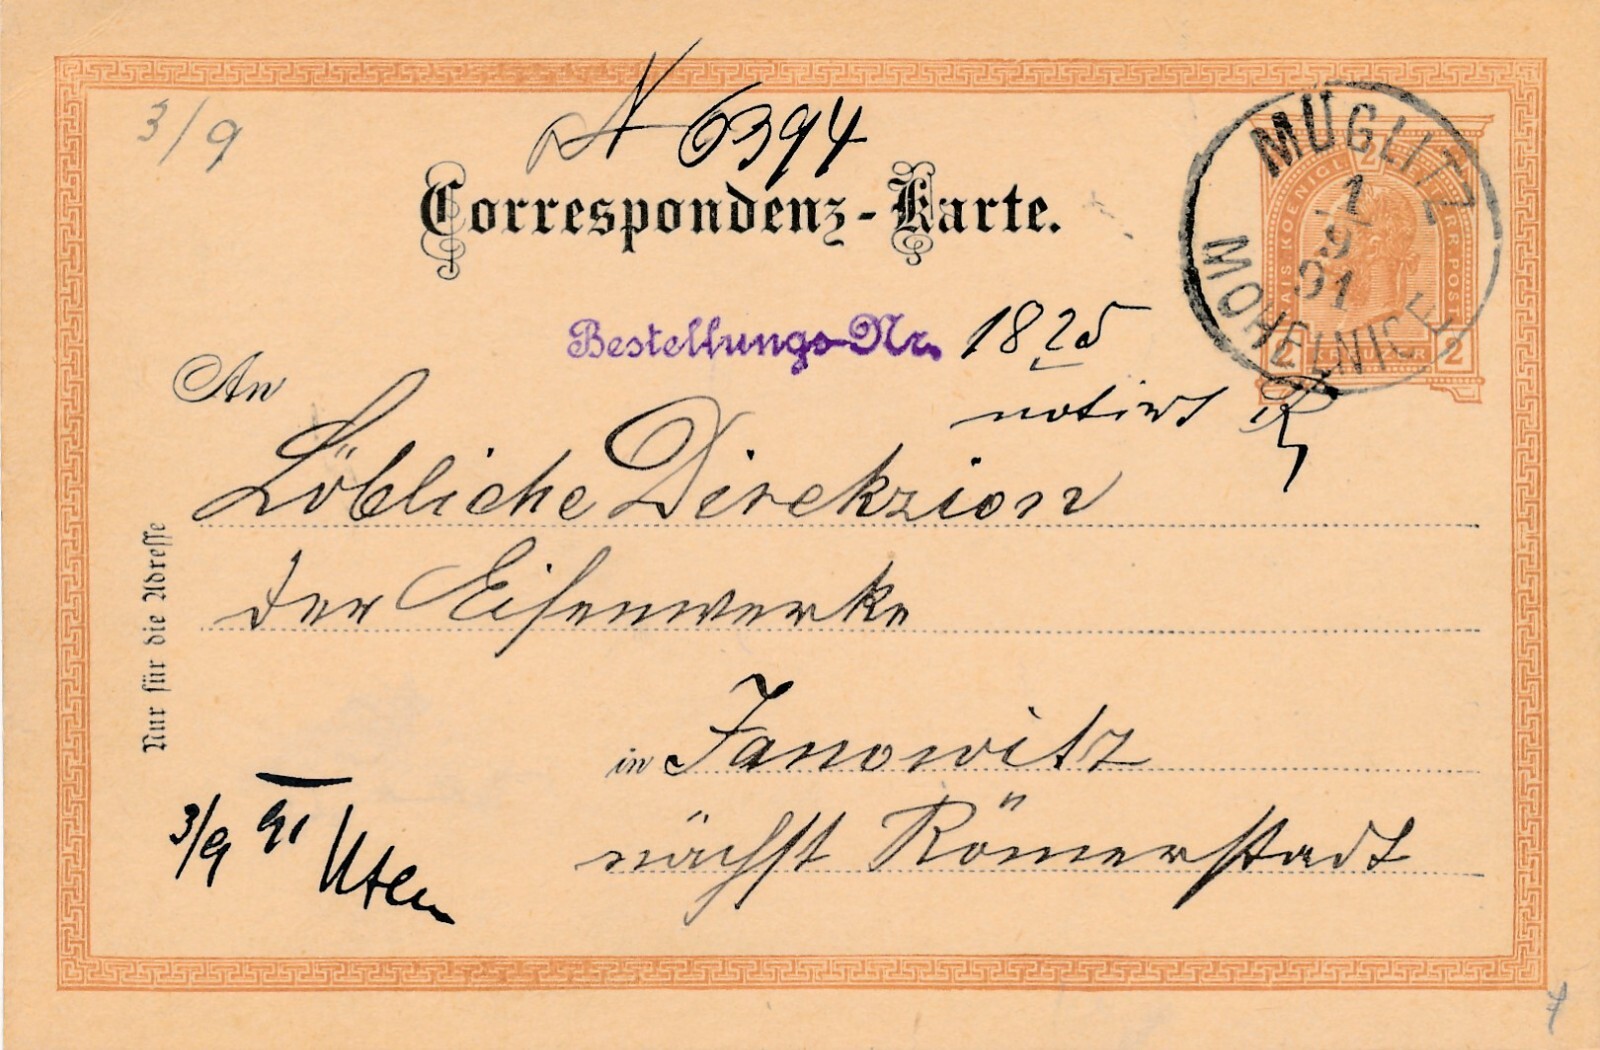 3/9
N 6394
Correspondenz-Karte.
MÜGLITZ
1
9
91
MOHELNICE
2 KREUZER 2
Bestellungs-Nr. 1825
notirt
An
Löbliche Direkzion
der Eisenwerke
in Janowitz
nächst Römerstadt
Nur für die Adresse
3/9 91